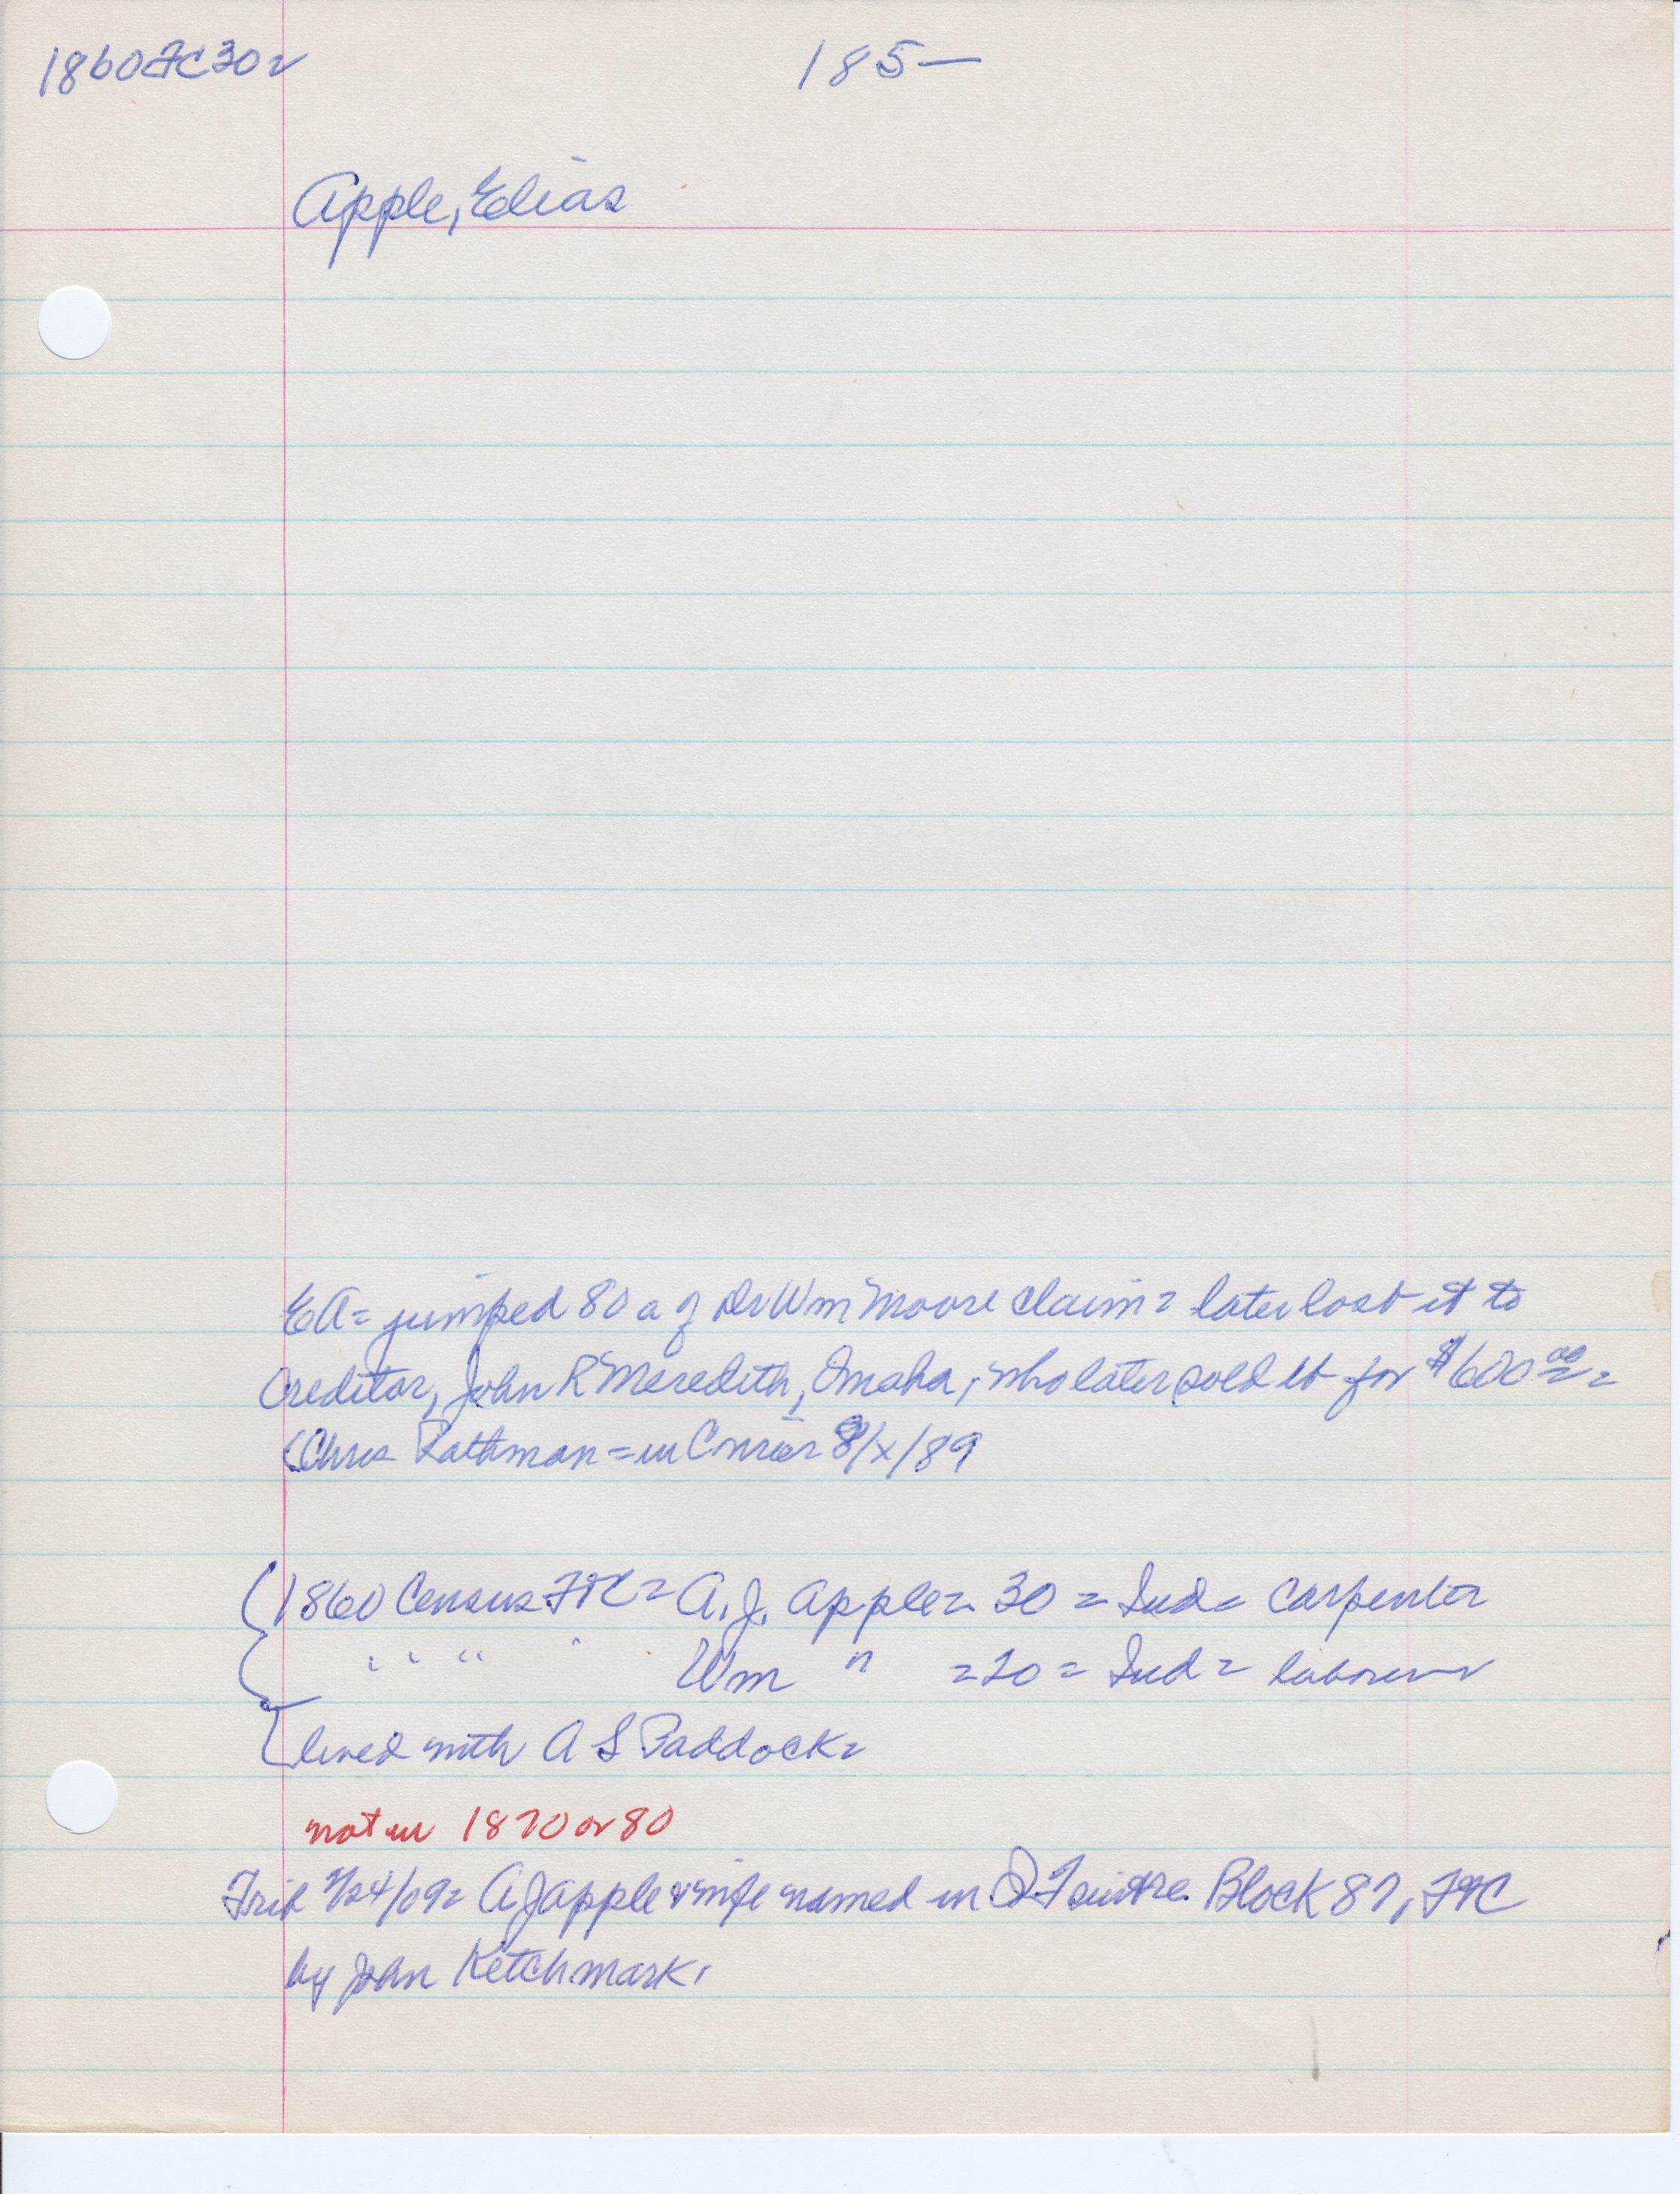 1860 FC 30 185—
Apple, Elias
EA= jumped 80 a of Dr Wm Moore claim= later lost it to
Creditor, John R Meredith, Omaha, who later sold it for $600 00 =
(Chris Rathman = in 8/x/89
1860 Census FtC= A. J. Apple= 30 = Ind= Carpenter
" " " Wm " =20= Ind= laborer
lived with A S Paddock=
not in 1870 or 80
Trib /24/09= A J Apple & wife named in Q T suit re. Block 87, FtC
by John Ketchmark.